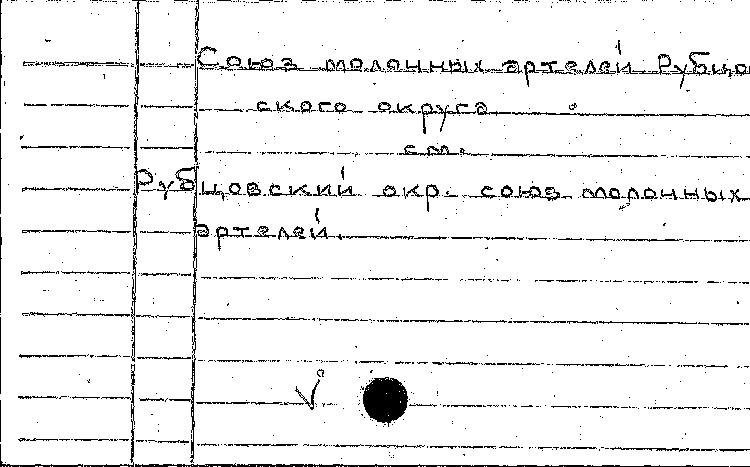 Союз молочных артелей Рубцов
ского округа
см.
Рубцовский окр. союз молочных
артелей.